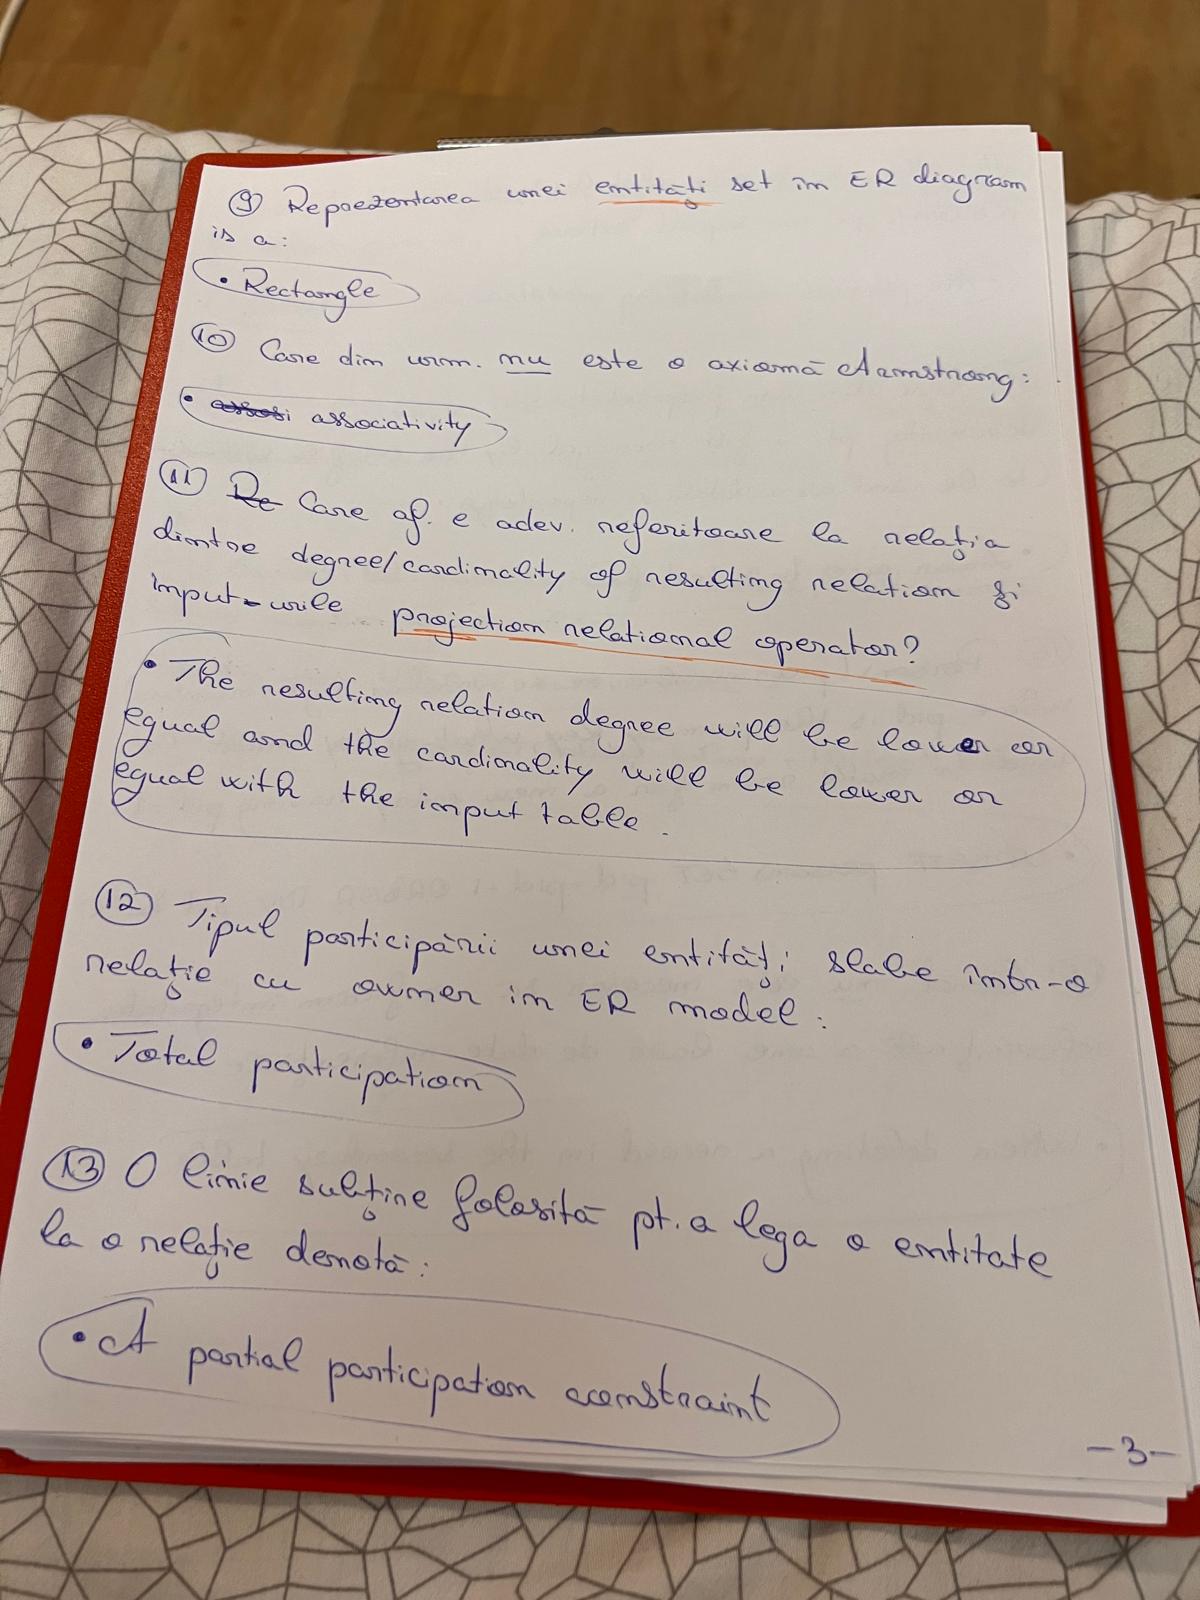 9 Reprezentarea unei entități set in ER diagram
is a:
• Rectangle
10 Care din urm. nu este o axiomă Armstrong:
• assosi associativity
11 Re Care af. e adev. referitoare la relația
dintre degree/cardinality of resulting relation și
input-urile projection relational operator?
• The resulting relation degree will be lower or
equal and the cardinality will be lower or
equal with the input table.
12 Tipul participării unei entităti slabe într-o
relație cu owner in ER model:
• Total participation
13 O linie subține folosită pt. a lega o entitate
la o relație denotă:
• A partial participation constraint
-3-